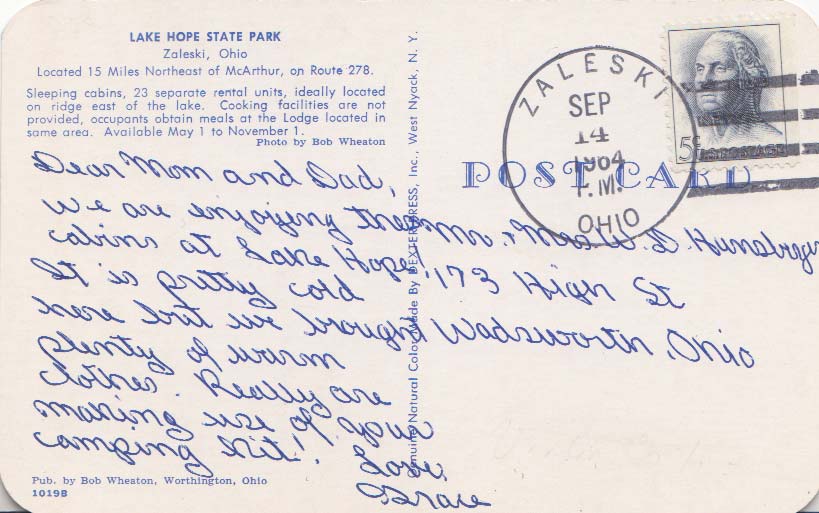 LAKE HOPE STATE PARK
Zaleski, Ohio
Located 15 Miles Northeast of McArthur, on Route 278.
Sleeping cabins, 23 separate rental units, ideally located
on ridge east of the lake. Cooking facilities are not
provided, occupants obtain meals at the Lodge located in
same area. Available May 1 to November 1.
Photo by Bob Wheaton
Dear Mom and Dad,
We are enjoying the
cabins at Lake Hope!
It is pretty cold
here but we brought
plenty of warm
clothes. Really are
making use of your
camping kit!
Love,
Grace
Pub. by Bob Wheaton, Worthington, Ohio
1019B
Genuine Natural Color Made By DEXTER PRESS, Inc., West Nyack, N. Y.
ZALESKI
SEP
14
1964
P.M.
OHIO
5¢
U.S. POSTAGE
POST CARD
Mr. + Mrs W. D. Hunsberger
173 High St
Wadsworth, Ohio